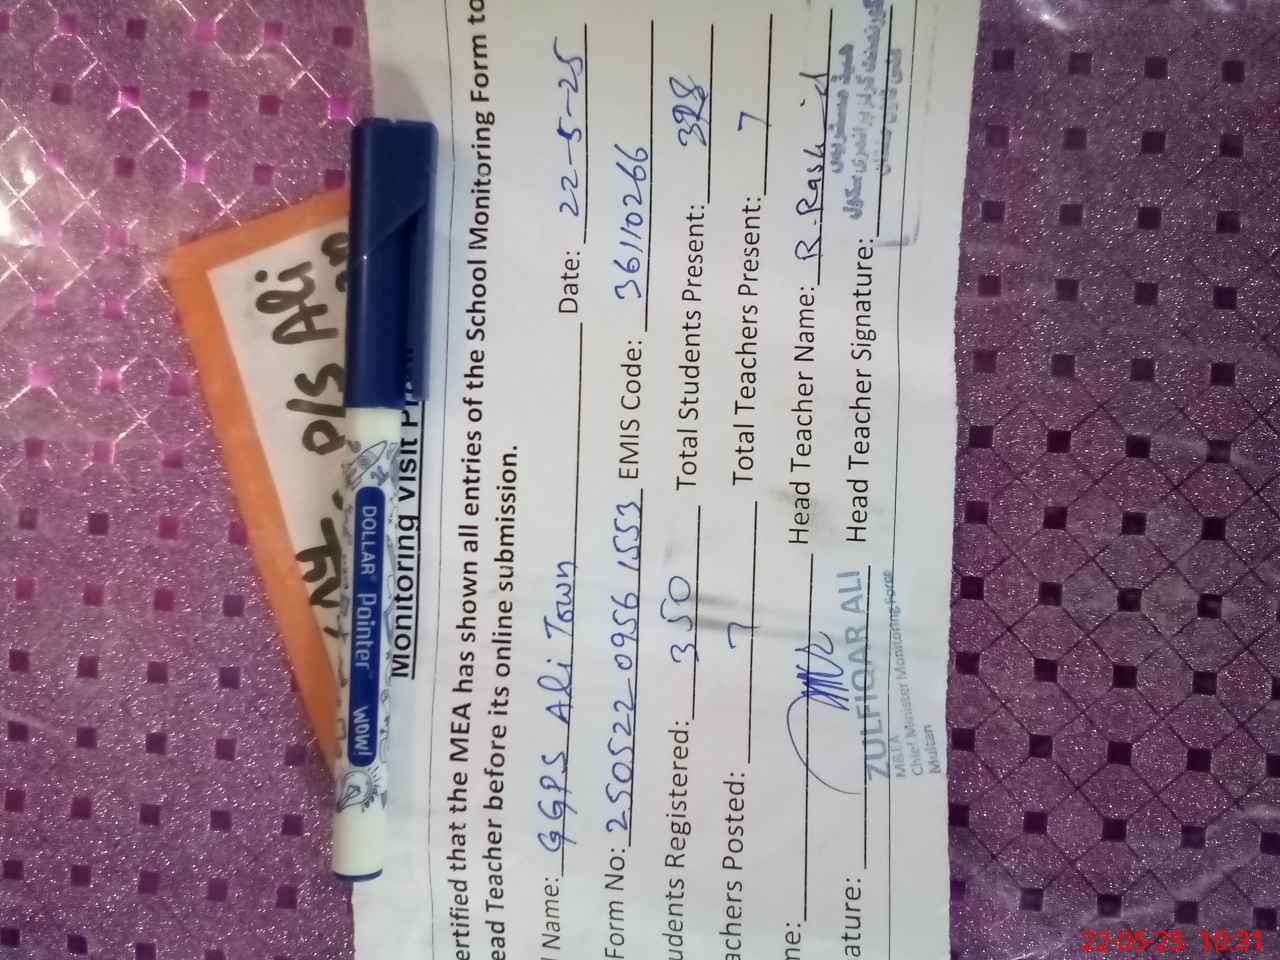 P/S Ali
DOLLAR Pointer WOW!
Monitoring Visit
ertified that the MEA has shown all entries of the School Monitoring Form to
ead Teacher before its online submission.
l Name: GGPS Ali Town Date: 22-5-25
Form No: 250522-0956 1553 EMIS Code: 36110266
udents Registered: 350 Total Students Present: 328
achers Posted: 7 Total Teachers Present: 7
me: Head Teacher Name: R.Rashid
ature: Head Teacher Signature:
ZULFIQAR ALI
MEA
Chief Minister Monitoring Force
Multan
22-05-25 10:31